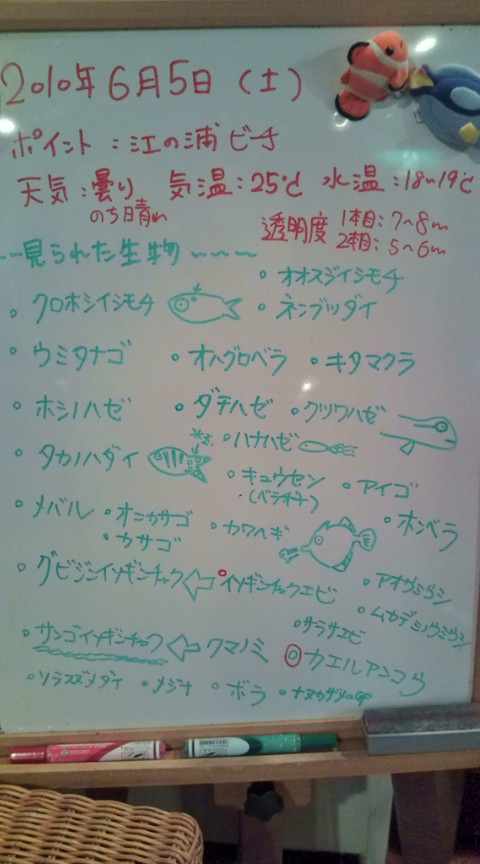 2010年6月5日(土)
ポイント:江の浦ビーチ
天気:曇り のち晴れ 気温:25℃ 水温:18〜19℃
透明度 1本目:7〜8m
2本目:5〜6m
〜〜見られた生物〜〜〜〜
○オオスジイシモチ
○クロホシイシモチ ○ネンブツダイ
○ウミタナゴ ○オハグロベラ ○キタマクラ
○ホシノハゼ ○ダテハゼ ○クツワハゼ
○タカノハダイ ○ハナハゼ
○キュウセン ○アイゴ
(ベラ科)
○メバル ○オニカサゴ ○カワハギ ○ホンベラ
○カサゴ
○グビジンイソギンチャク ⇦ ○イソギンチャクエビ ○アオウミウシ
○ムカデミノウミウシ
○サラサエビ
○サンゴイソギンチャク ⇦ クマノミ ◎カエルアンコウ
○ソラスズメダイ ○メジナ ○ボラ